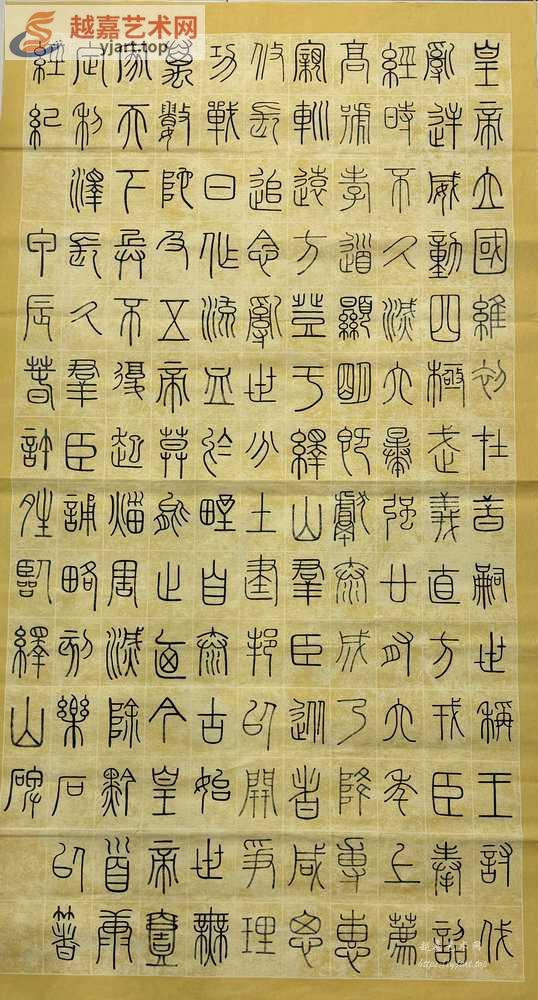 越嘉艺术网
yjart.top
皇帝立國維初在昔嗣世稱王討伐
亂逆威動四極武義直方戎臣奉詔
經時不久滅六暴強廿有六年上薦
高號孝道顯明既獻泰成乃降專惠
親巡遠方登于繹山羣臣從者咸思
攸長追念亂世分土建邦以開爭理
功戰日作流血於野自泰古始世無
萬數陀及五帝莫能止廼今皇帝壹
家天下兵不復起災害滅除黔首康
定利澤長久羣臣誦略刻樂石以著
經紀 甲辰春許臨繹山碑